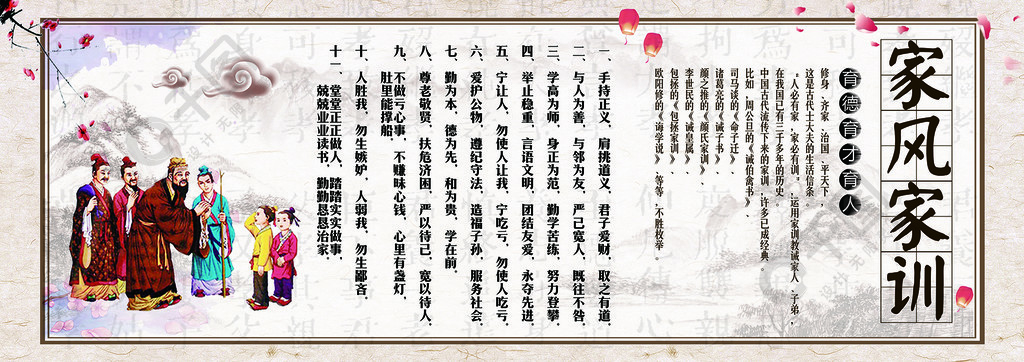 家风家训
育德育才育人
修身、齐家、治国、平天下，
这是古代士大夫的生活信条。
“人必有家，家必有训”，运用家训教诫家人、子弟，
在我国已有三千多年的历史。
中国古代流传下来的家训，许多已成经典。
比如，周公旦的《诫伯禽书》、
司马谈的《命子迁》
诸葛亮的《诫子书》、
颜之推的《颜氏家训》、
李世民的《诫皇属》
包拯的《包拯家训》、
欧阳修的《诲学说》，等等，不胜枚举。
一、手持正义，肩挑道义，君子爱财，取之有道。
二、与人为善，与邻为友，严己宽人，既往不咎。
三、学高为师，身正为范，勤学苦练，努力登攀。
四、举止稳重，言语文明，团结友爱，永夺先进。
五、宁让人，勿使人让我，宁吃亏，勿使人吃亏。
六、爱护公物，遵纪守法，造福子孙，服务社会。
七、勤为本，德为先，和为贵，学在前。
八、尊老敬贤，扶危济困，严以待己，宽以待人。
九、不做亏心事，不赚昧心钱，心里有盏灯，
肚里能撑船。
十、人胜我，勿生嫉妒，人弱我，勿生鄙吝。
十一、堂堂正正做人，踏踏实实做事，
兢兢业业读书，勤勤恳恳治家。